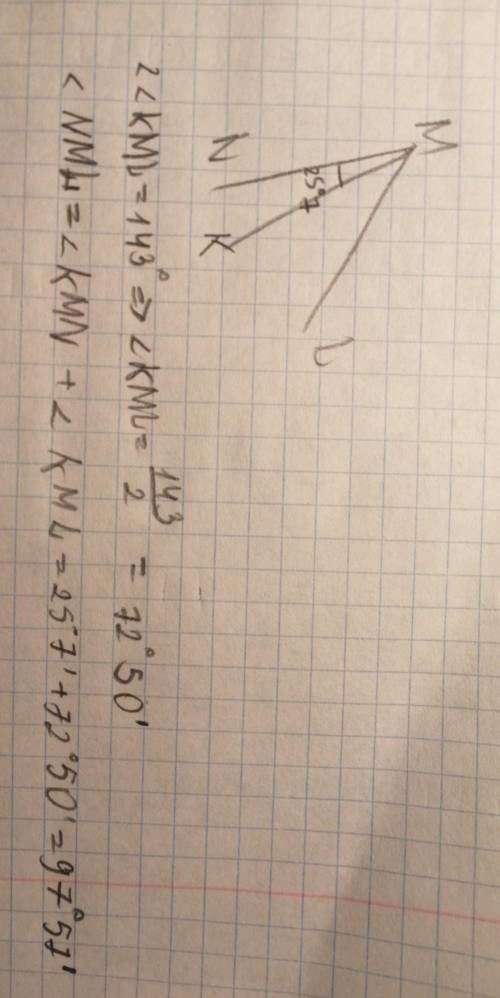 M
N
K
L
25°7
2<KML = 143° => <KML = 143/2 = 72°50'
<NML = <KMN + <KML = 25°7' + 72°50' = 97°57'